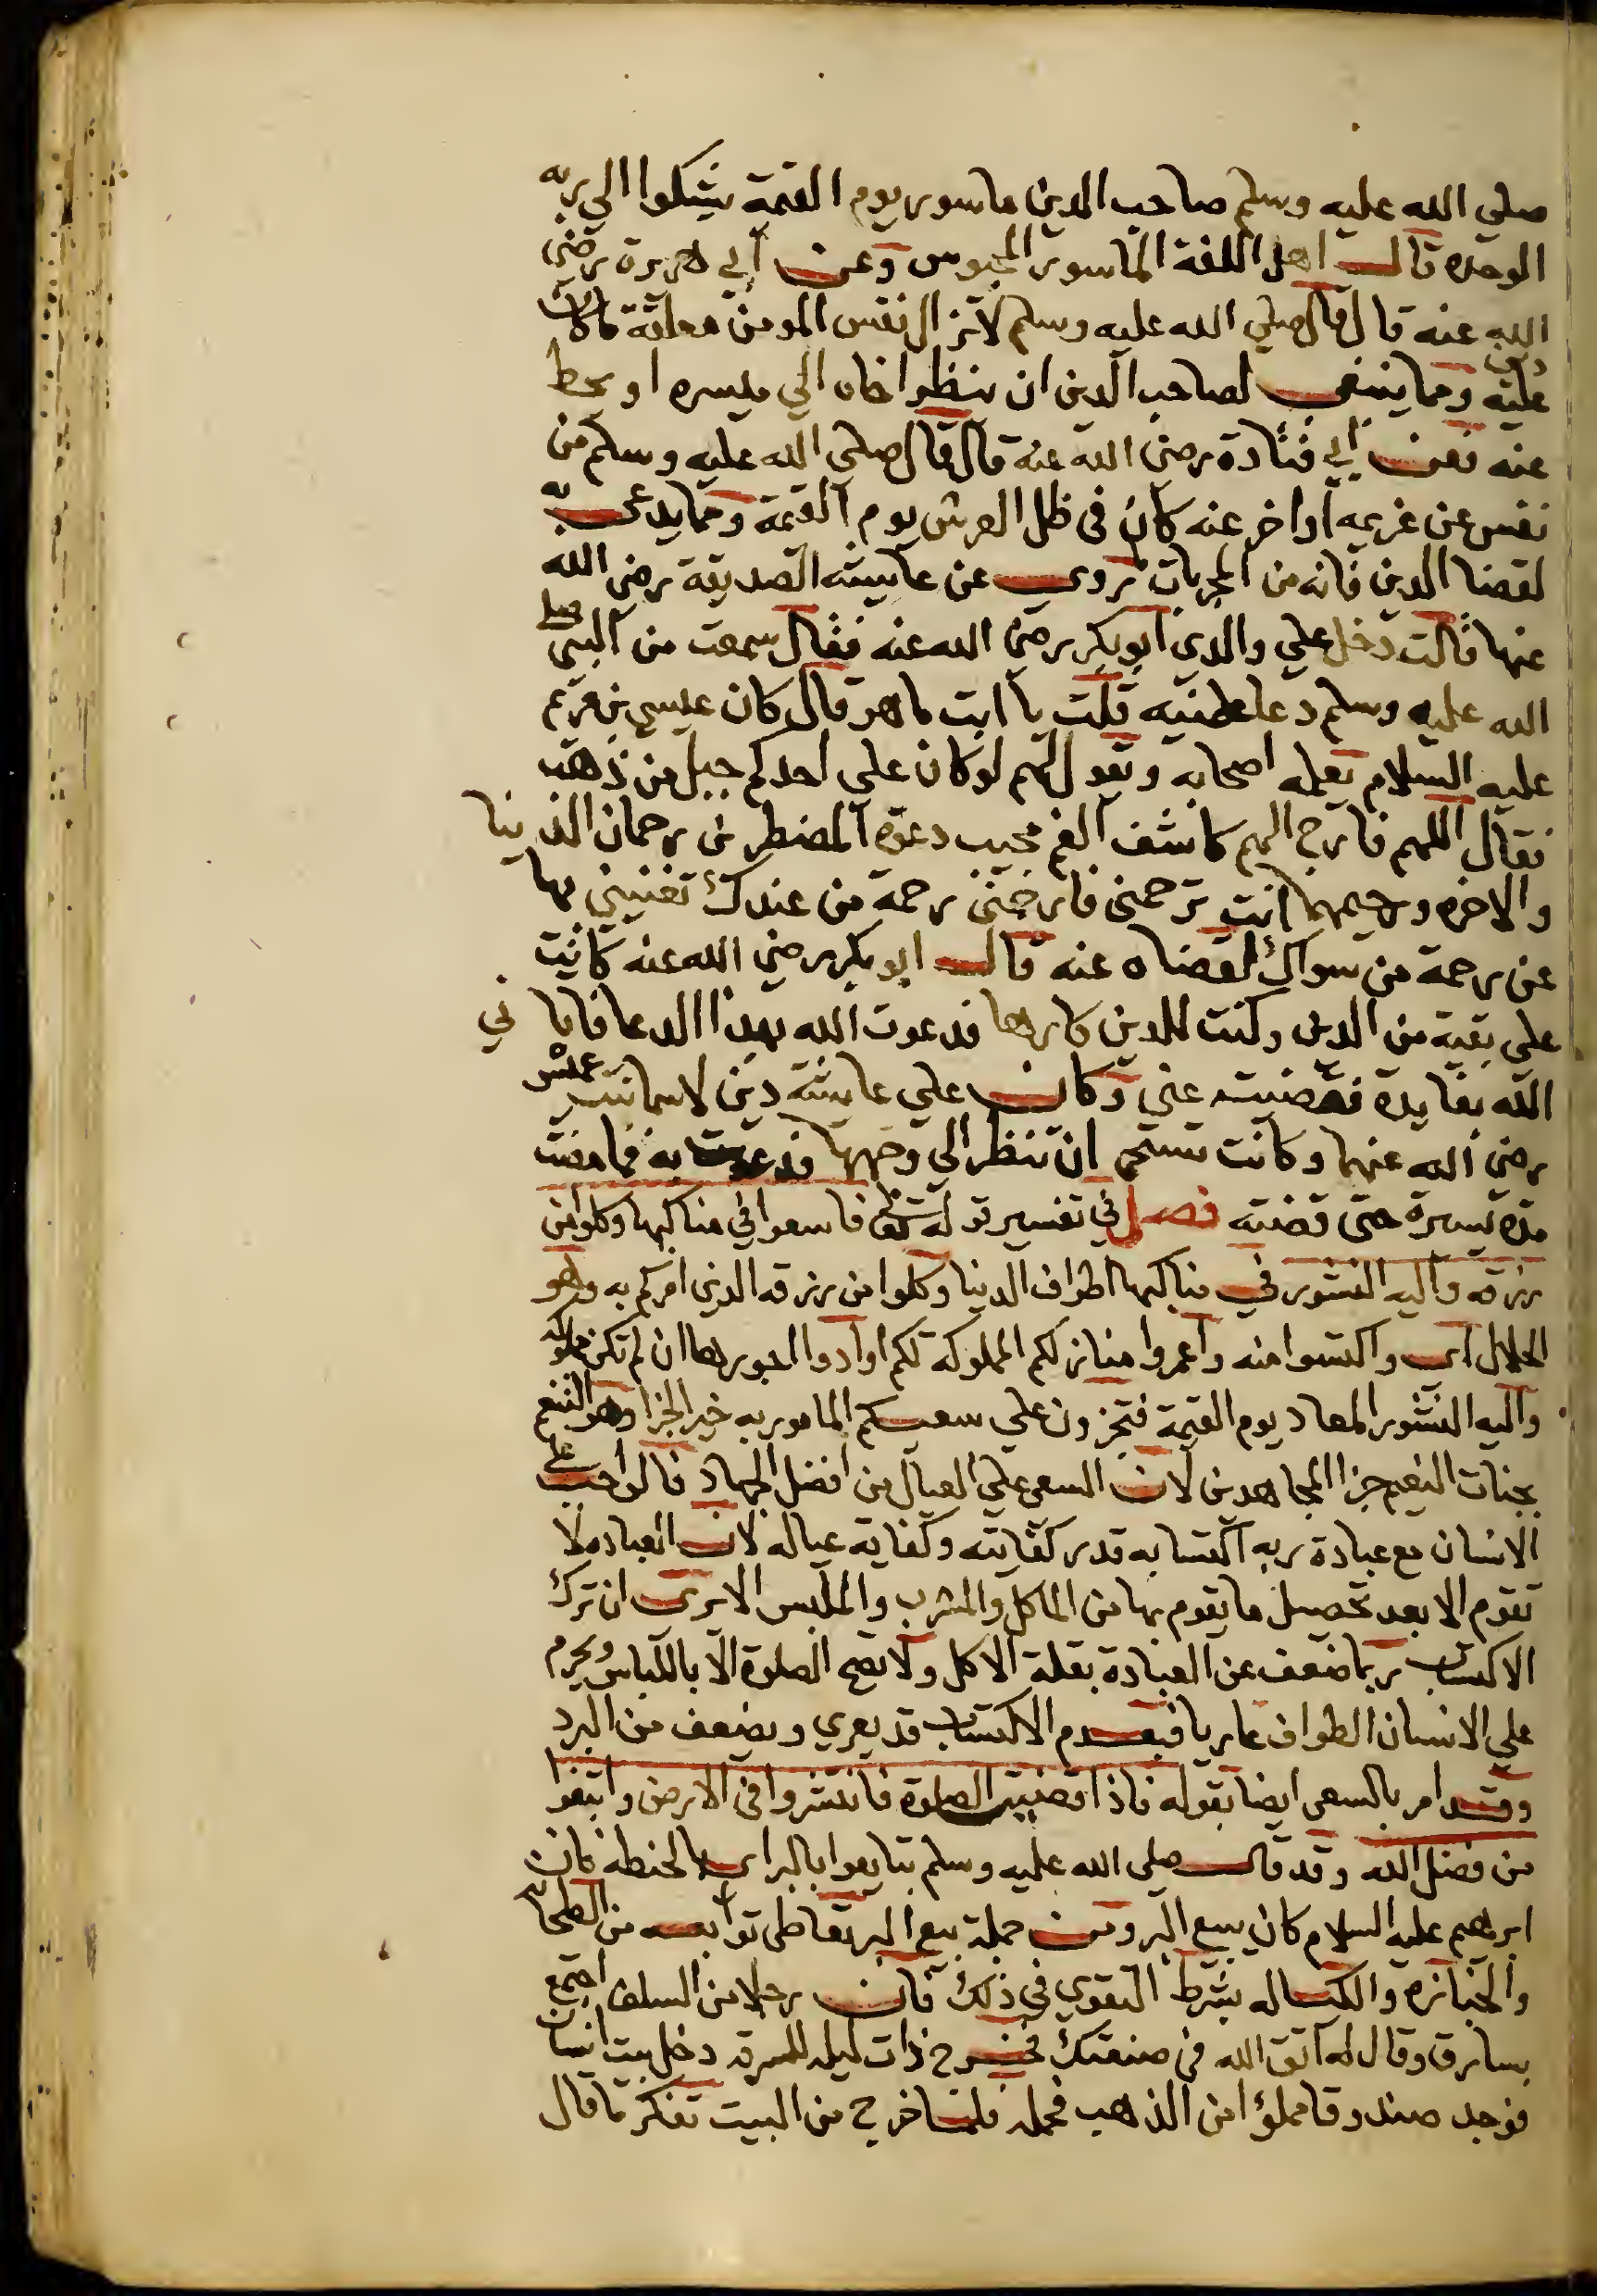 صلي الله عليه وسلم صاحب الدين ماسور يوم القيمة يشكوا الي ربه
الوحده قال اهل اللغة الماسور المحبوس وعن أبي هريرة رضي
الله عنه قال قال صلي الله عليه وسلم لا تزال نفس المومن معلقة ماكان
عليه دين ومما ينبغي لصاحب الدين ان ينظر اخاه الي ميسره او يحط
عنه فعن أبي قتادة رضي الله عنه قال قال صلي الله عليه وسلم من
نفس عن غريمه او اخر عنه كان في ظل العرش يوم القيمة ومما يدعى به
لقضا الدين فانه من المجربات روي عن عايشه الصديقة رضي الله
عنها قالت دخل علي والدي ابو بكر رضي الله عنه فقال سمعت من النبي صلى
الله عليه وسلم دعا علمنيه قلت يا ابت ما هو قال كان عيسي بن مريم
عليه السلام يعلمه اصحابه ويقول لهم لو كان علي احدكم جبل من ذهب
فقال اللهم فارج الهم كاشف الغم مجيب دعوة المضطرين رحمان الدنيا
والاخره ورحيمهما انت ترحمني فارحمني رحمة من عندك تغنيني بها
عن رحمة من سواك لقضاه عنه قال ابو بكر رضي الله عنه كانت
علي بقية من الدين وكنت للدين كارها فدعوت الله بهذا الدعا فاتاني
الله بفايدة فقضيت عني وكان علي عايشة دين لاسما بنت عميس
رضي الله عنهما وكانت تستحي ان تنظر الي وجهها فدعوت به فما مضت
مده يسيرة حتى قضته فصل في تفسير قوله تعالى فاسعوا في مناكبها وكلوا من
رزقه واليه النشور في مناكبها اطراف الدينا وكلوا من رزقه الذي امركم به وهو
الحلال اي واكتسوا منه واعمروا منازلكم المملوكة لكم او ادوا اجورها ان لم تكن مملوكه
واليه النشور المعاد يوم القيمة فتجزون علي سعيكم المامور به خير الجزا وهو التنعم
بجنات النعيم جزا المجاهدين لان السعي علي العيال من افضل الجهاد فالواجب على
الانسان مع عبادة ربه اكتسابه قدر كفايته وكفاية عياله لان العباده لا
تقوم الا بعد تحصيل ما يقوم بها من الماكل والمشرب والملبس الا ترى ان ترك
الاكتساب ربما ضعف عن العبادة بقلة الاكل ولا تصح الصلوة الا باللباس ويحرم
علي الانسان الطواف عاريا فبعدم الاكتساب قد يعري ويضعف من البرد
وقد امر بالسعي ايضا بقوله فاذا قضيت الصلوة فانتشروا في الارض وابتغوا
من فضل الله وقد قال صلي الله عليه وسلم تبايعوا بالبر اي الحنطه فان
ابرهيم عليه السلام كان يبيع البر ومن جملة بيع البر تعاطي توابعه من الطحانه
والخبازه والكياله بشرط التقوي في ذلك فان رجلا من السلف اجتمع
بسارق وقال له اتق الله في صنعتك فخرج ذات ليله للسرقه دخل بيت انسان
فوجد صندوقا مملؤا من الذهب فحمله فلما خرج من البيت تفكر ما قال